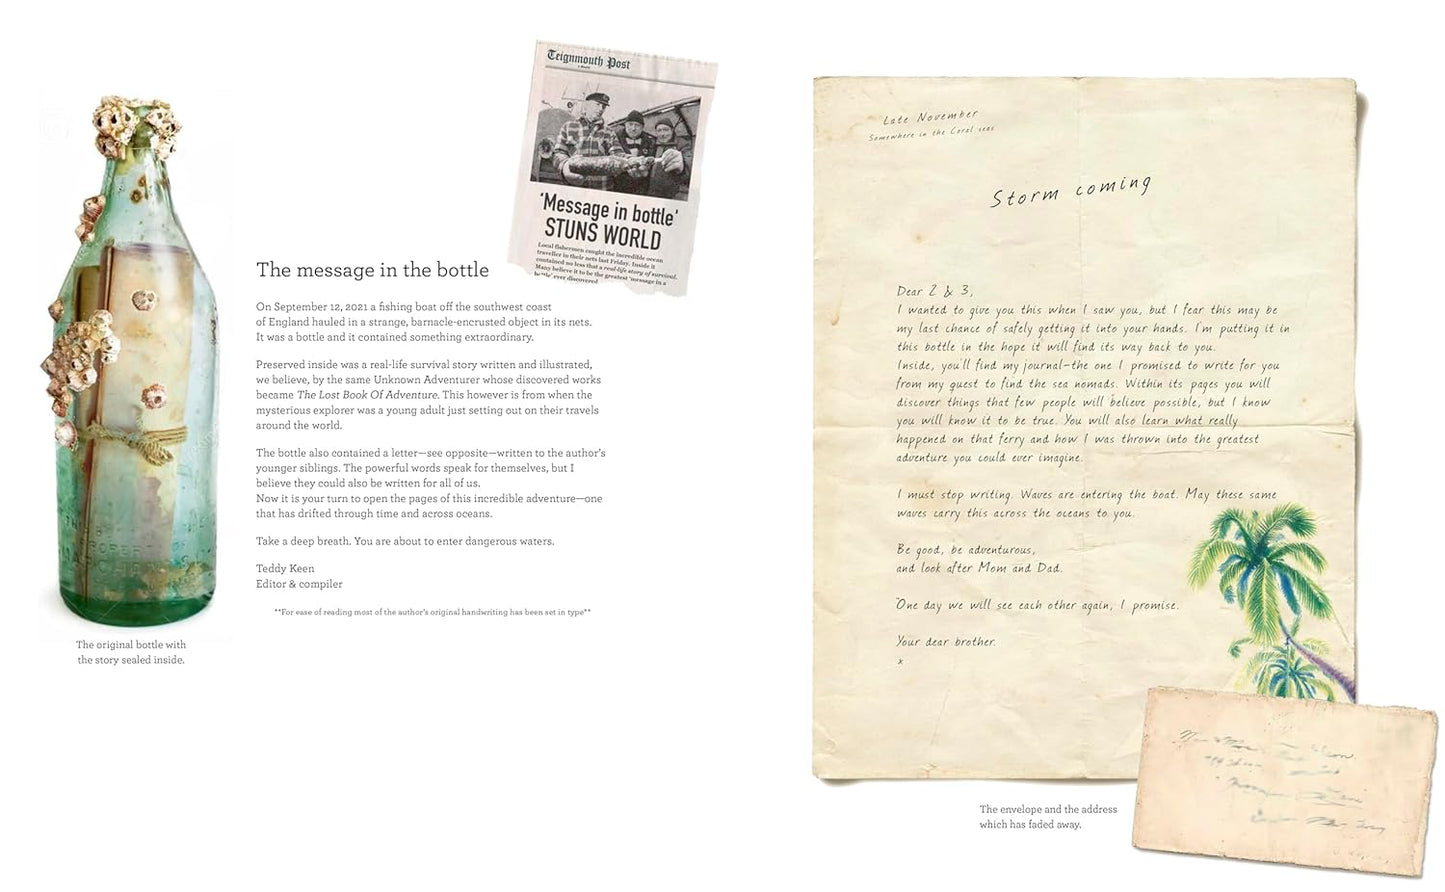 Teignmouth Post
'Message in bottle'
STUNS WORLD
Local fishermen caught the incredible ocean
traveller in their nets last Friday. Inside it
contained no less that a real-life story of survival.
Many believe it to be the greatest 'message in a
bottle' ever discovered
The message in the bottle
On September 12, 2021 a fishing boat off the southwest coast
of England hauled in a strange, barnacle-encrusted object in its nets.
It was a bottle and it contained something extraordinary.
Preserved inside was a real-life survival story written and illustrated,
we believe, by the same Unknown Adventurer whose discovered works
became The Lost Book Of Adventure. This however is from when the
mysterious explorer was a young adult just setting out on their travels
around the world.
The bottle also contained a letter—see opposite—written to the author's
younger siblings. The powerful words speak for themselves, but I
believe they could also be written for all of us.
Now it is your turn to open the pages of this incredible adventure—one
that has drifted through time and across oceans.
Take a deep breath. You are about to enter dangerous waters.
Teddy Keen
Editor & compiler
**For ease of reading most of the author's original handwriting has been set in type**
The original bottle with
the story sealed inside.
Late November
Somewhere in the Coral seas
Storm coming
Dear Z & J,
I wanted to give you this when I saw you, but I fear this may be
my last chance of safely getting it into your hands. I'm putting it in
this bottle in the hope it will find its way back to you.
Inside, you'll find my journal—the one I promised to write for you
from my quest to find the sea nomads. Within its pages you will
discover things that few people will believe possible, but I know
you will know it to be true. You will also learn what really
happened on that ferry and how I was thrown into the greatest
adventure you could ever imagine.
I must stop writing. Waves are entering the boat. May these same
waves carry this across the oceans to you.
Be good, be adventurous,
and look after Mom and Dad.
One day we will see each other again, I promise.
Your dear brother.
x
The envelope and the address
which has faded away.